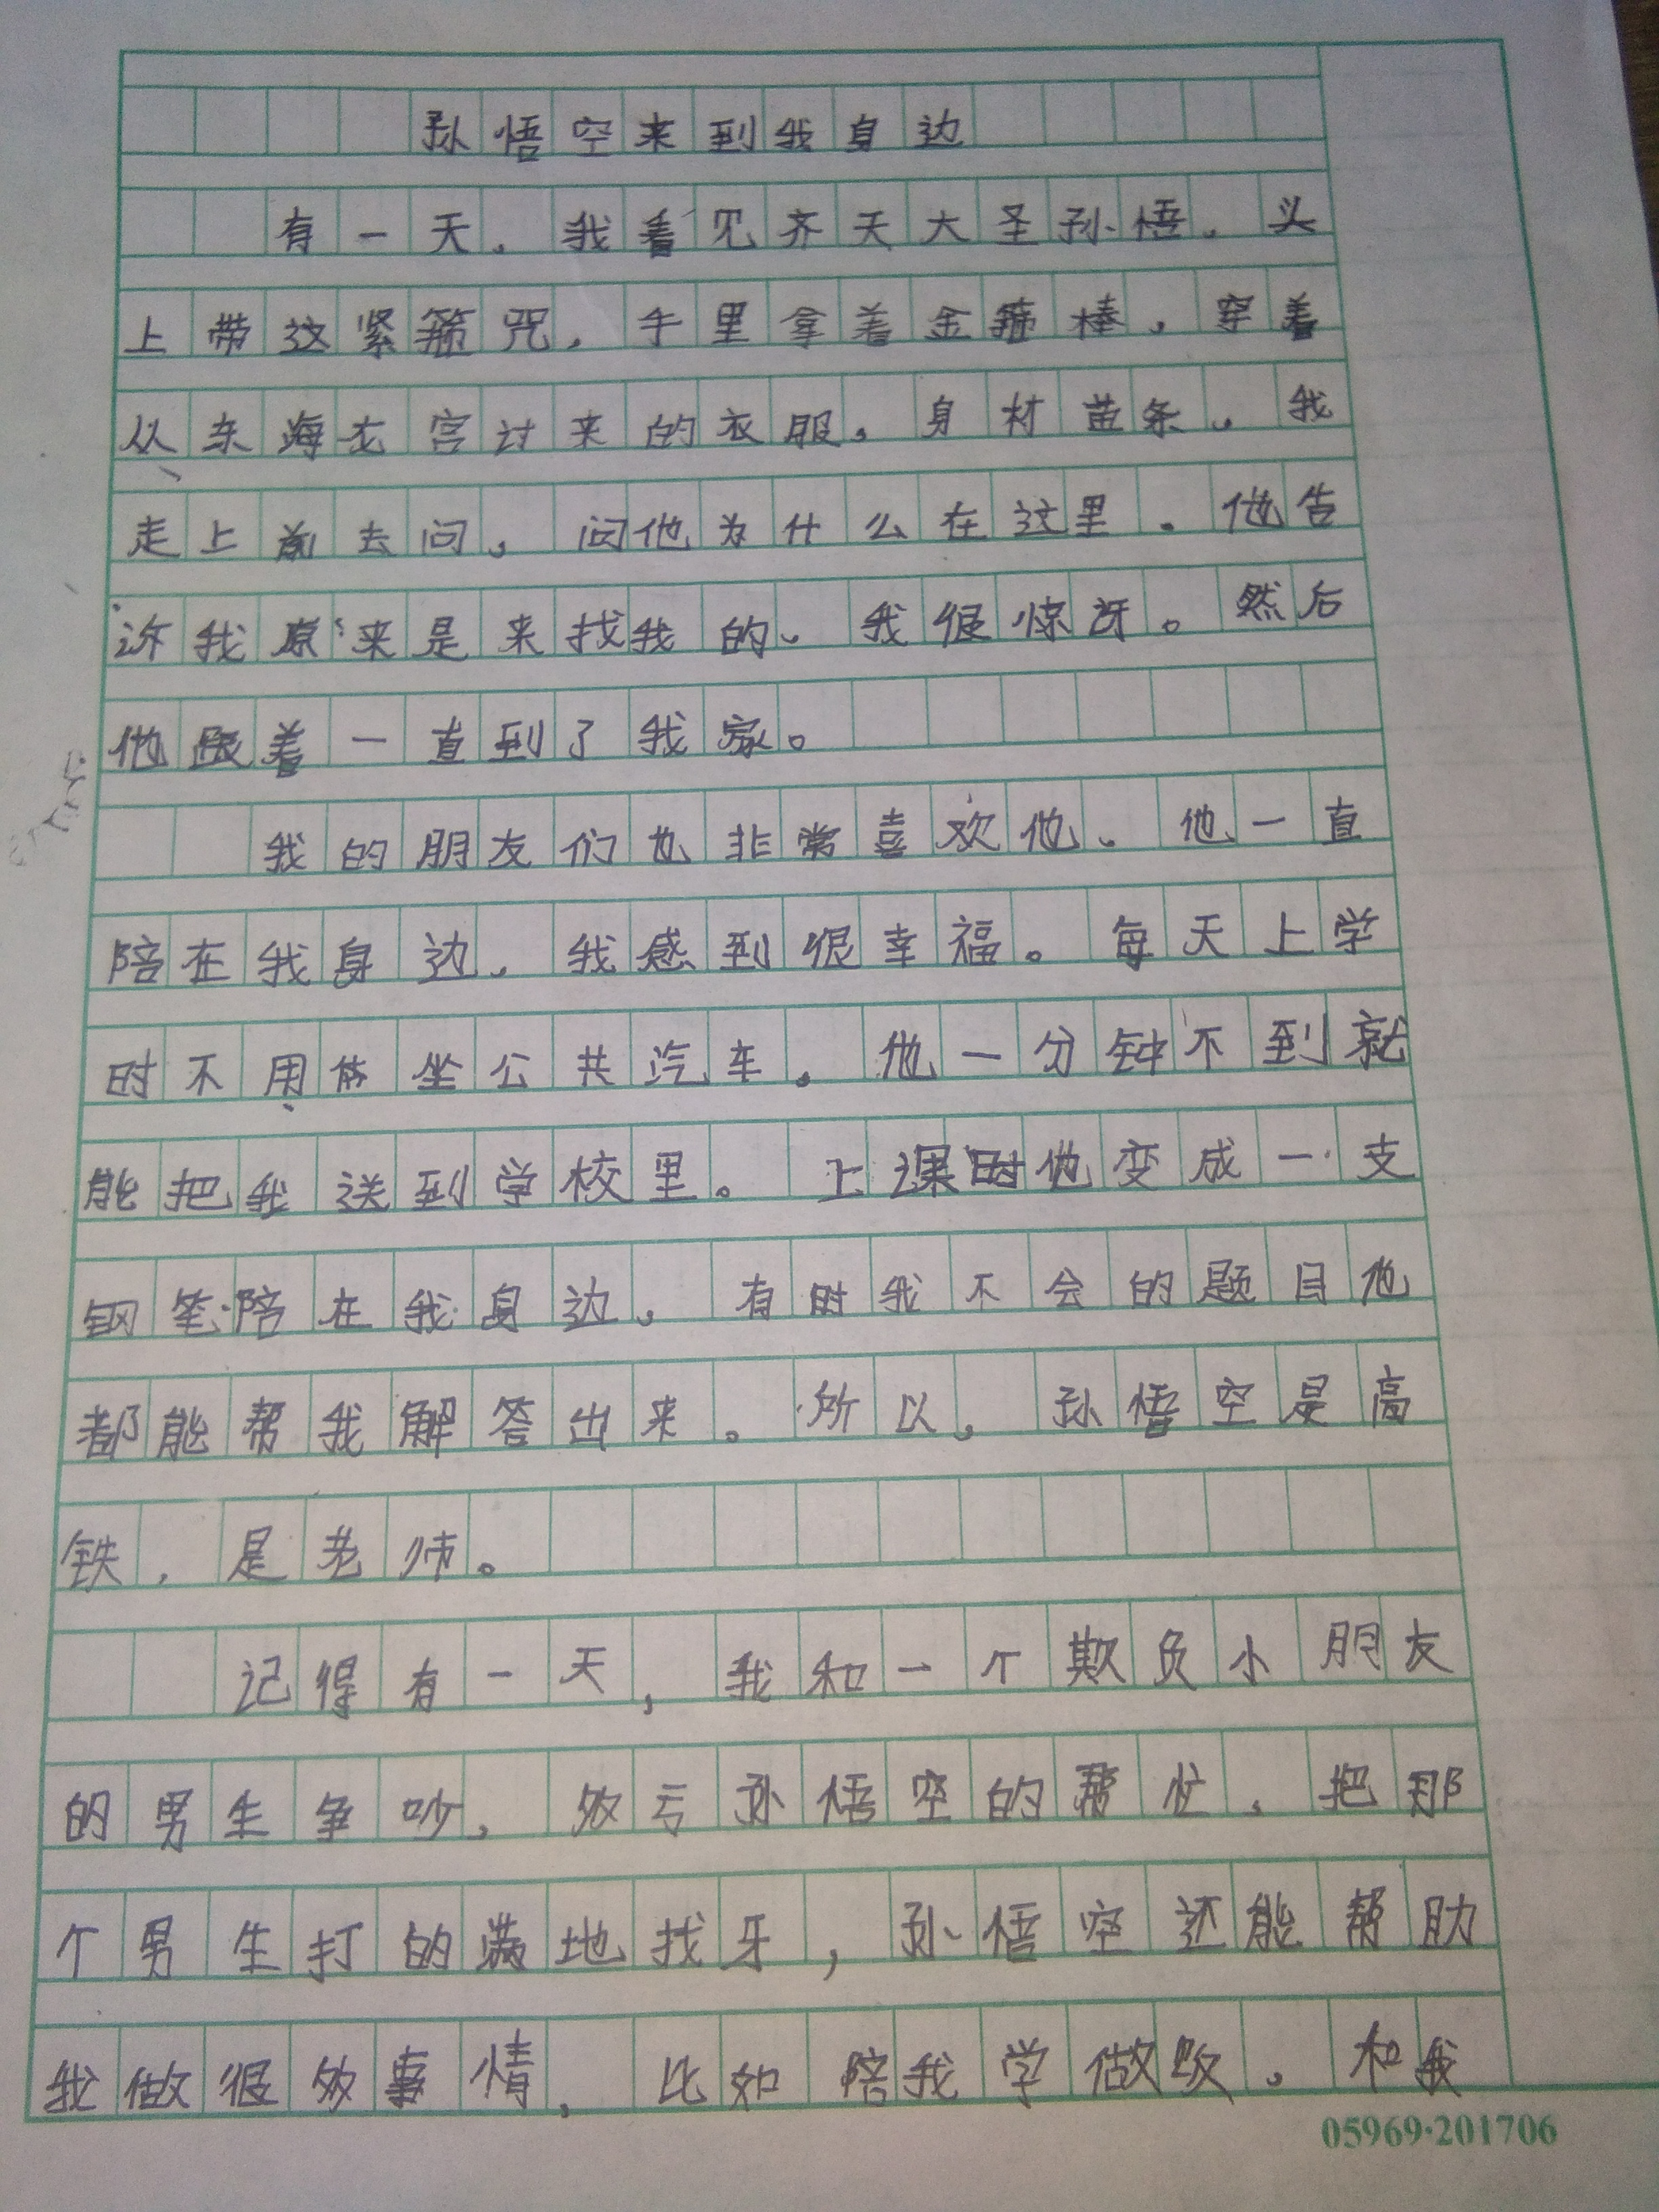 孙悟空来到我身边
有一天，我看见齐天大圣孙悟，头
上带这紧箍咒，手里拿着金箍棒，穿着
从东海龙宫讨来的衣服，身材苗条，我
走上前去问，问他为什么在这里。他告
诉我原来是来找我的、我很惊讶。然后
他跟着一直到了我家。
我的朋友们也非常喜欢他、他一直
陪在我身边，我感到很幸福。每天上学
时不用坐公共汽车。他一分钟不到就
能把我送到学校里。上课时他变成一支
钢笔陪在我身边，有时我不会的题目他
都能帮我解答出来。所以，孙悟空是高
铁，是老师。
记得有一天，我和一个欺负小朋友
的男生争吵，多亏孙悟空的帮忙，把那
个男生打的满地找牙，孙悟空还能帮助
我做很多事情，比如陪我学做饭，和我
05969·201706